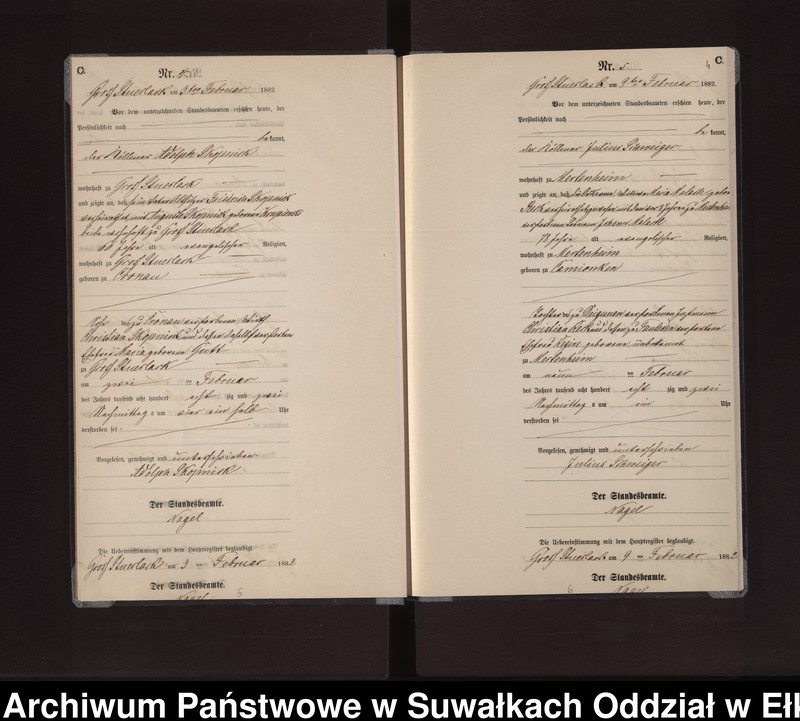 C.
Nr. 4.
Groß Stuerlack am 3ten Februar 1882.
Vor dem unterzeichneten Standesbeamten erschien heute, der
Persönlichkeit nach
be kannt,
der Köllmer Adolph Skopnick
wohnhaft zu Groß Stuerlack
und zeigte an, daß Friedrich Skopnick
verheirathet mit Auguste Skopnick geborene
beide wohnhaft zu Groß Stuerlack
Jahre alt evangelischer Religion,
wohnhaft zu Groß Stuerlack
geboren zu Cronau
Sohn des zu Cronau verstorbenen Wirth
Christian Skopnick und dessen daselbst verstorbenen
Ehefrau Maria geborene Gutt
zu Groß Stuerlack
am zwei ten Februar
des Jahres tausend acht hundert acht zig und zwei
Nachmittag s um vier ein halb Uhr
verstorben sei
Vorgelesen, genehmigt und unterschrieben
Adolph Skopnick
Der Standesbeamte.
Nagel
Die Uebereinstimmung mit dem Hauptregister beglaubigt.
Groß Stuerlack am 3 ten Februar 1882
Der Standesbeamte.
Nagel
5
4
C.
Nr. 5
Groß Stuerlack am 9ten Februar 1882.
Vor dem unterzeichneten Standesbeamten erschien heute, der
Persönlichkeit nach
be kannt,
der Köllmer Julius
wohnhaft zu Mertenheim
und zeigte an, daß die Maria
verheirathet gewesen mit dem vor 8 Jahren zu Mertenheim
verstorbenen Johann
78 Jahre alt evangelischer Religion,
wohnhaft zu Mertenheim
geboren zu Camionken
Tochter des zu verstorbenen
Christian und dessen zu verstorbenen
Ehefrau Regine geborene unbekannt
zu Mertenheim
am neun ten Februar
des Jahres tausend acht hundert acht zig und zwei
Nachmittag s um ein Uhr
verstorben sei
Vorgelesen, genehmigt und unterschrieben
Julius
Der Standesbeamte.
Nagel
Die Uebereinstimmung mit dem Hauptregister beglaubigt.
Groß Stuerlack am 9 ten Februar 1882
Der Standesbeamte.
Nagel
6
Archiwum Państwowe w Suwałkach Oddział w Eł